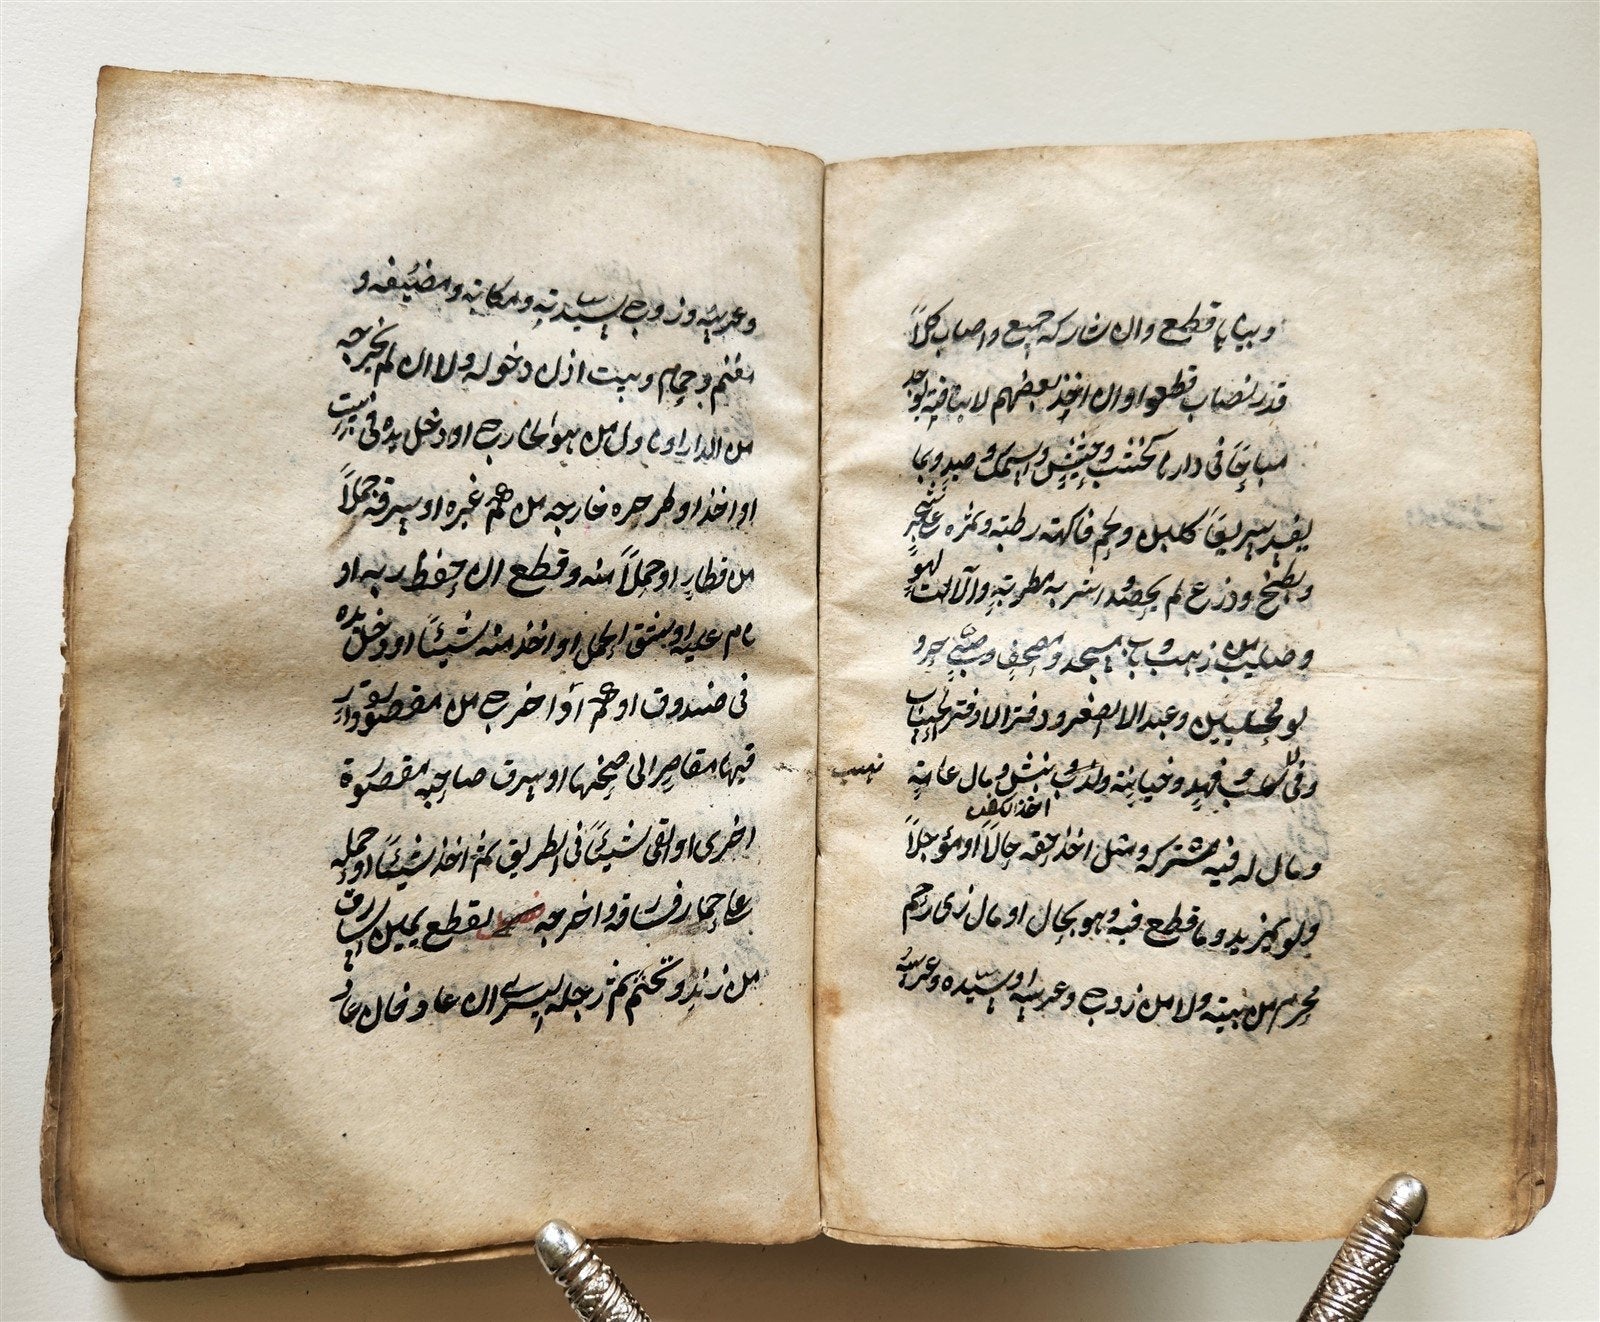 وبينا يا قطع وان شاركه جمع واصاب كلاً
قدر نصاب قطعوا وان اخذ بعضهم لا بتافه يوجد
مباحًا فى دارنا كخشب وحشيش وسمك وصيد وبما
يفسد سريعًا كلبن ولحم وفاكهة رطبة وثمره على شجر
وبطيخ وزرع لم يحصد واشربة مطربة وآلات لهو
وصليب من ذهب وباب مسجد ومصحف وصبى حر و
لو محليين وعبد الا الصغير ودفتر الا دفتر الحساب
وفى كلب وفهد وخيانة ونهب ونبش ومال عامة
اخذ الكفن
نهب
ومال له فيه شركة ومثل اخذ حقه حالاً او مؤجلاً
ولو بمزيد وما قطع فيه وهو بحال او مال ذى رحم
محرم من بيته ولا من زوج وعرسه او سيده وعرسه
وعرسه وزوج سيدته ومكاتبه ومضيفه و
مغنم وحمام وبيت اذن دخوله ولا ان لم يخرجه
من الدار او ناول من هو خارج او دخل يده فى بيت
او اخذ او طر صره خارجه من كم غيره او سرق جملاً
من قطار او حملاً منه وقطع ان حفظ ربه او
نام عليه او شق الحمل او اخذ منه شيئًا او دخل يده
فى صندوق او كم او اخرج من مقصورة دار
فيها مقاصر الى صحنها او سرق صاحب مقصورة
اخرى او القى شيئًا فى الطريق ثم اخذ شيئًا او حمله
على حمار فساقه واخرجه فصل يقطع يمين السارق
من زنده وتحسم ثم رجله اليسرى ان عاد وفان عاد